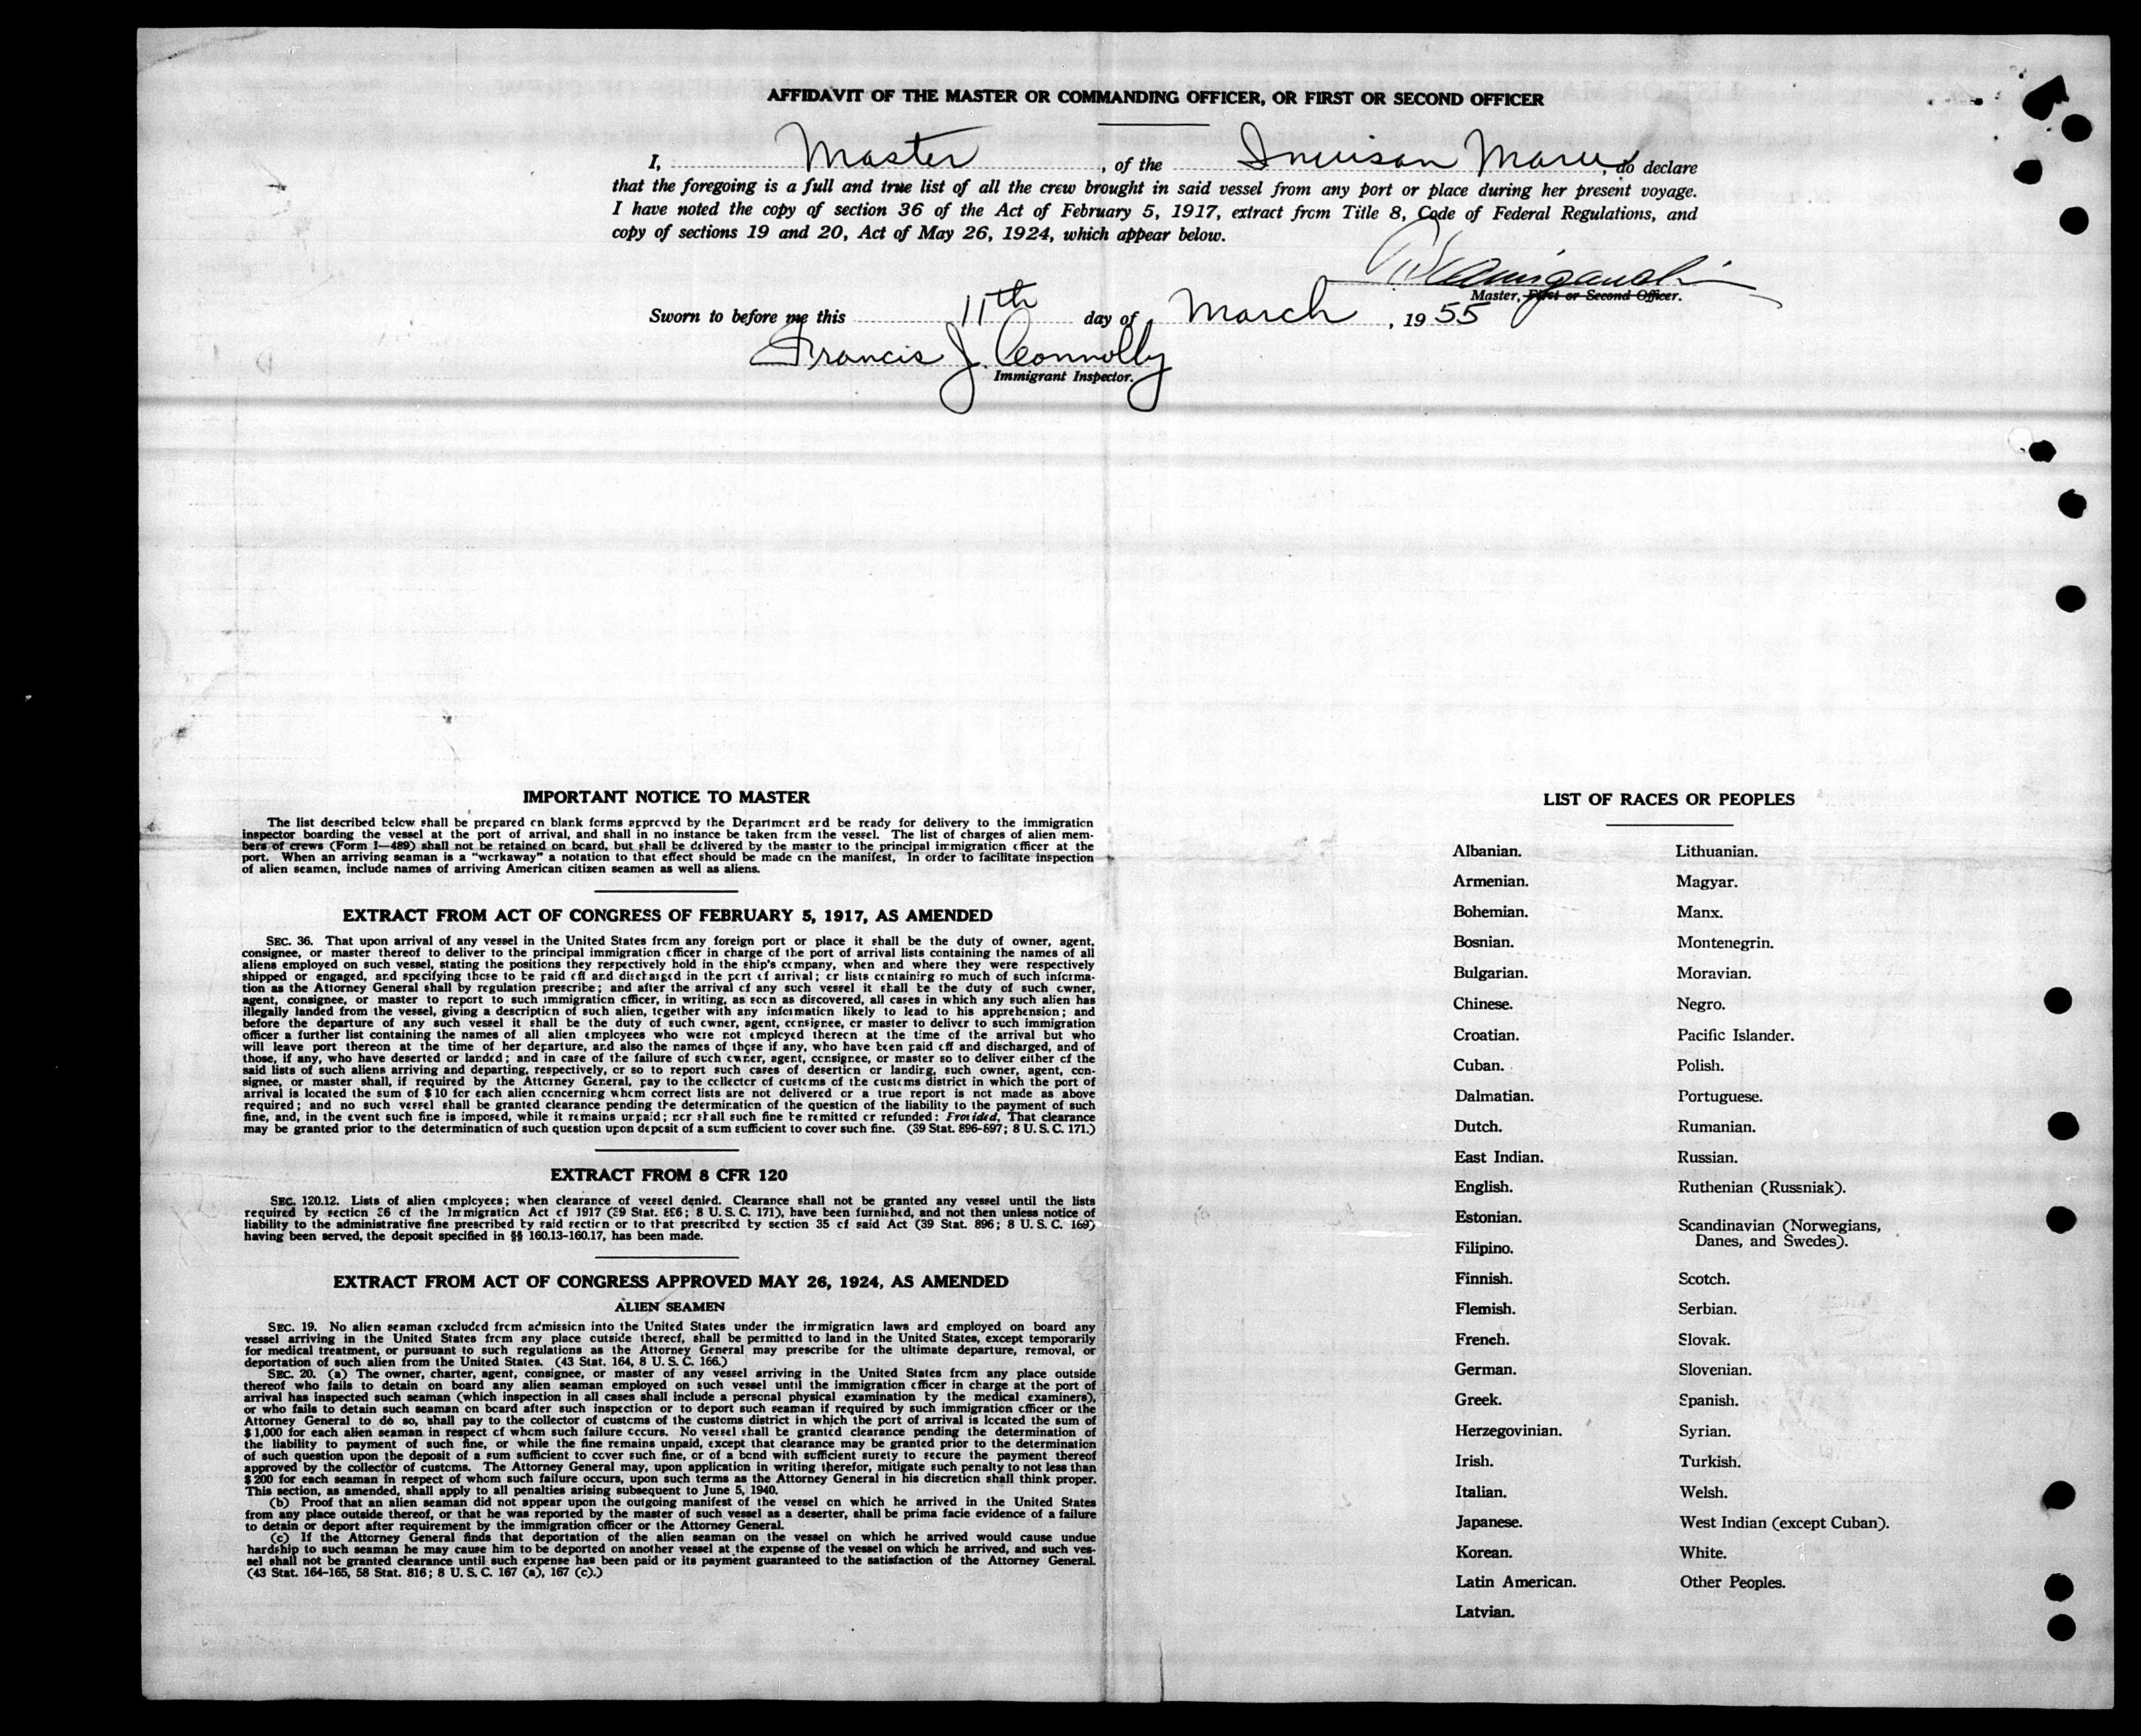 AFFIDAVIT OF THE MASTER OR COMMANDING OFFICER, OR FIRST OR SECOND OFFICER
I, Master, of the Inuisan Maru, do declare
that the foregoing is a full and true list of all the crew brought in said vessel from any port or place during her present voyage.
I have noted the copy of section 36 of the Act of February 5, 1917, extract from Title 8, Code of Federal Regulations, and
copy of sections 19 and 20, Act of May 26, 1924, which appear below.
Master, First or Second Officer.
Sworn to before me this 11th day of March, 1955
Francis J. Connolly
Immigrant Inspector.
IMPORTANT NOTICE TO MASTER
The list described below shall be prepared on blank forms approved by the Department and be ready for delivery to the immigration
inspector boarding the vessel at the port of arrival, and shall in no instance be taken from the vessel. The list of charges of alien mem-
bers of crews (Form I—489) shall not be retained on board, but shall be delivered by the master to the principal immigration officer at the
port. When an arriving seaman is a "workaway" a notation to that effect should be made on the manifest, In order to facilitate inspection
of alien seamen, include names of arriving American citizen seamen as well as aliens.
EXTRACT FROM ACT OF CONGRESS OF FEBRUARY 5, 1917, AS AMENDED
SEC. 36. That upon arrival of any vessel in the United States from any foreign port or place it shall be the duty of owner, agent,
consignee, or master thereof to deliver to the principal immigration officer in charge of the port of arrival lists containing the names of all
aliens employed on such vessel, stating the positions they respectively hold in the ship's company, when and where they were respectively
shipped or engaged, and specifying those to be paid off and discharged in the port of arrival; or lists containing so much of such informa-
tion as the Attorney General shall by regulation prescribe; and after the arrival of any such vessel it shall be the duty of such owner,
agent, consignee, or master to report to such immigration officer, in writing, as soon as discovered, all cases in which any such alien has
illegally landed from the vessel, giving a description of such alien, together with any information likely to lead to his apprehension; and
before the departure of any such vessel it shall be the duty of such owner, agent, consignee, or master to deliver to such immigration
officer a further list containing the names of all alien employees who were not employed thereon at the time of the arrival but who
will leave port thereon at the time of her departure, and also the names of those if any, who have been paid off and discharged, and of
those, if any, who have deserted or landed; and in case of the failure of such owner, agent, consignee, or master so to deliver either of the
said lists of such aliens arriving and departing, respectively, or so to report such cases of desertion or landing, such owner, agent, con-
signee, or master shall, if required by the Attorney General, pay to the collector of customs of the customs district in which the port of
arrival is located the sum of $10 for each alien concerning whom correct lists are not delivered or a true report is not made as above
required; and no such vessel shall be granted clearance pending the determination of the question of the liability to the payment of such
fine, and, in the event such fine is imposed, while it remains unpaid; nor shall such fine be remitted or refunded: Provided, That clearance
may be granted prior to the determination of such question upon deposit of a sum sufficient to cover such fine. (39 Stat. 896-897; 8 U. S. C. 171.)
EXTRACT FROM 8 CFR 120
SEC. 120.12. Lists of alien employees; when clearance of vessel denied. Clearance shall not be granted any vessel until the lists
required by section 36 of the Immigration Act of 1917 (39 Stat. 896; 8 U. S. C. 171), have been furnished, and not then unless notice of
liability to the administrative fine prescribed by said section or to that prescribed by section 35 of said Act (39 Stat. 896; 8 U. S. C. 169)
having been served, the deposit specified in §§ 160.13-160.17, has been made.
EXTRACT FROM ACT OF CONGRESS APPROVED MAY 26, 1924, AS AMENDED
ALIEN SEAMEN
SEC. 19. No alien seaman excluded from admission into the United States under the immigration laws and employed on board any
vessel arriving in the United States from any place outside thereof, shall be permitted to land in the United States, except temporarily
for medical treatment, or pursuant to such regulations as the Attorney General may prescribe for the ultimate departure, removal, or
deportation of such alien from the United States. (43 Stat. 164, 8 U. S. C. 166.)
SEC. 20. (a) The owner, charter, agent, consignee, or master of any vessel arriving in the United States from any place outside
thereof who fails to detain on board any alien seaman employed on such vessel until the immigration officer in charge at the port of
arrival has inspected such seaman (which inspection in all cases shall include a personal physical examination by the medical examiners),
or who fails to detain such seaman on board after such inspection or to deport such seaman if required by such immigration officer or the
Attorney General to do so, shall pay to the collector of customs of the customs district in which the port of arrival is located the sum of
$1,000 for each alien seaman in respect of whom such failure occurs. No vessel shall be granted clearance pending the determination of
the liability to payment of such fine, or while the fine remains unpaid, except that clearance may be granted prior to the determination
of such question upon the deposit of a sum sufficient to cover such fine, or of a bond with sufficient surety to secure the payment thereof
approved by the collector of customs. The Attorney General may, upon application in writing therefor, mitigate such penalty to not less than
$200 for each seaman in respect of whom such failure occurs, upon such terms as the Attorney General in his discretion shall think proper.
This section, as amended, shall apply to all penalties arising subsequent to June 5, 1940.
(b) Proof that an alien seaman did not appear upon the outgoing manifest of the vessel on which he arrived in the United States
from any place outside thereof, or that he was reported by the master of such vessel as a deserter, shall be prima facie evidence of a failure
to detain or deport after requirement by the immigration officer or the Attorney General.
(c) If the Attorney General finds that deportation of the alien seaman on the vessel on which he arrived would cause undue
hardship to such seaman he may cause him to be deported on another vessel at the expense of the vessel on which he arrived, and such ves-
sel shall not be granted clearance until such expense has been paid or its payment guaranteed to the satisfaction of the Attorney General.
(43 Stat. 164-165, 58 Stat. 816; 8 U. S. C. 167 (a), 167 (c).)
LIST OF RACES OR PEOPLES
Albanian.
Armenian.
Bohemian.
Bosnian.
Bulgarian.
Chinese.
Croatian.
Cuban.
Dalmatian.
Dutch.
East Indian.
English.
Estonian.
Filipino.
Finnish.
Flemish.
French.
German.
Greek.
Herzegovinian.
Irish.
Italian.
Japanese.
Korean.
Latin American.
Latvian.
Lithuanian.
Magyar.
Manx.
Montenegrin.
Moravian.
Negro.
Pacific Islander.
Polish.
Portuguese.
Rumanian.
Russian.
Ruthenian (Russniak).
Scandinavian (Norwegians,
Danes, and Swedes).
Scotch.
Serbian.
Slovak.
Slovenian.
Spanish.
Syrian.
Turkish.
Welsh.
West Indian (except Cuban).
White.
Other Peoples.